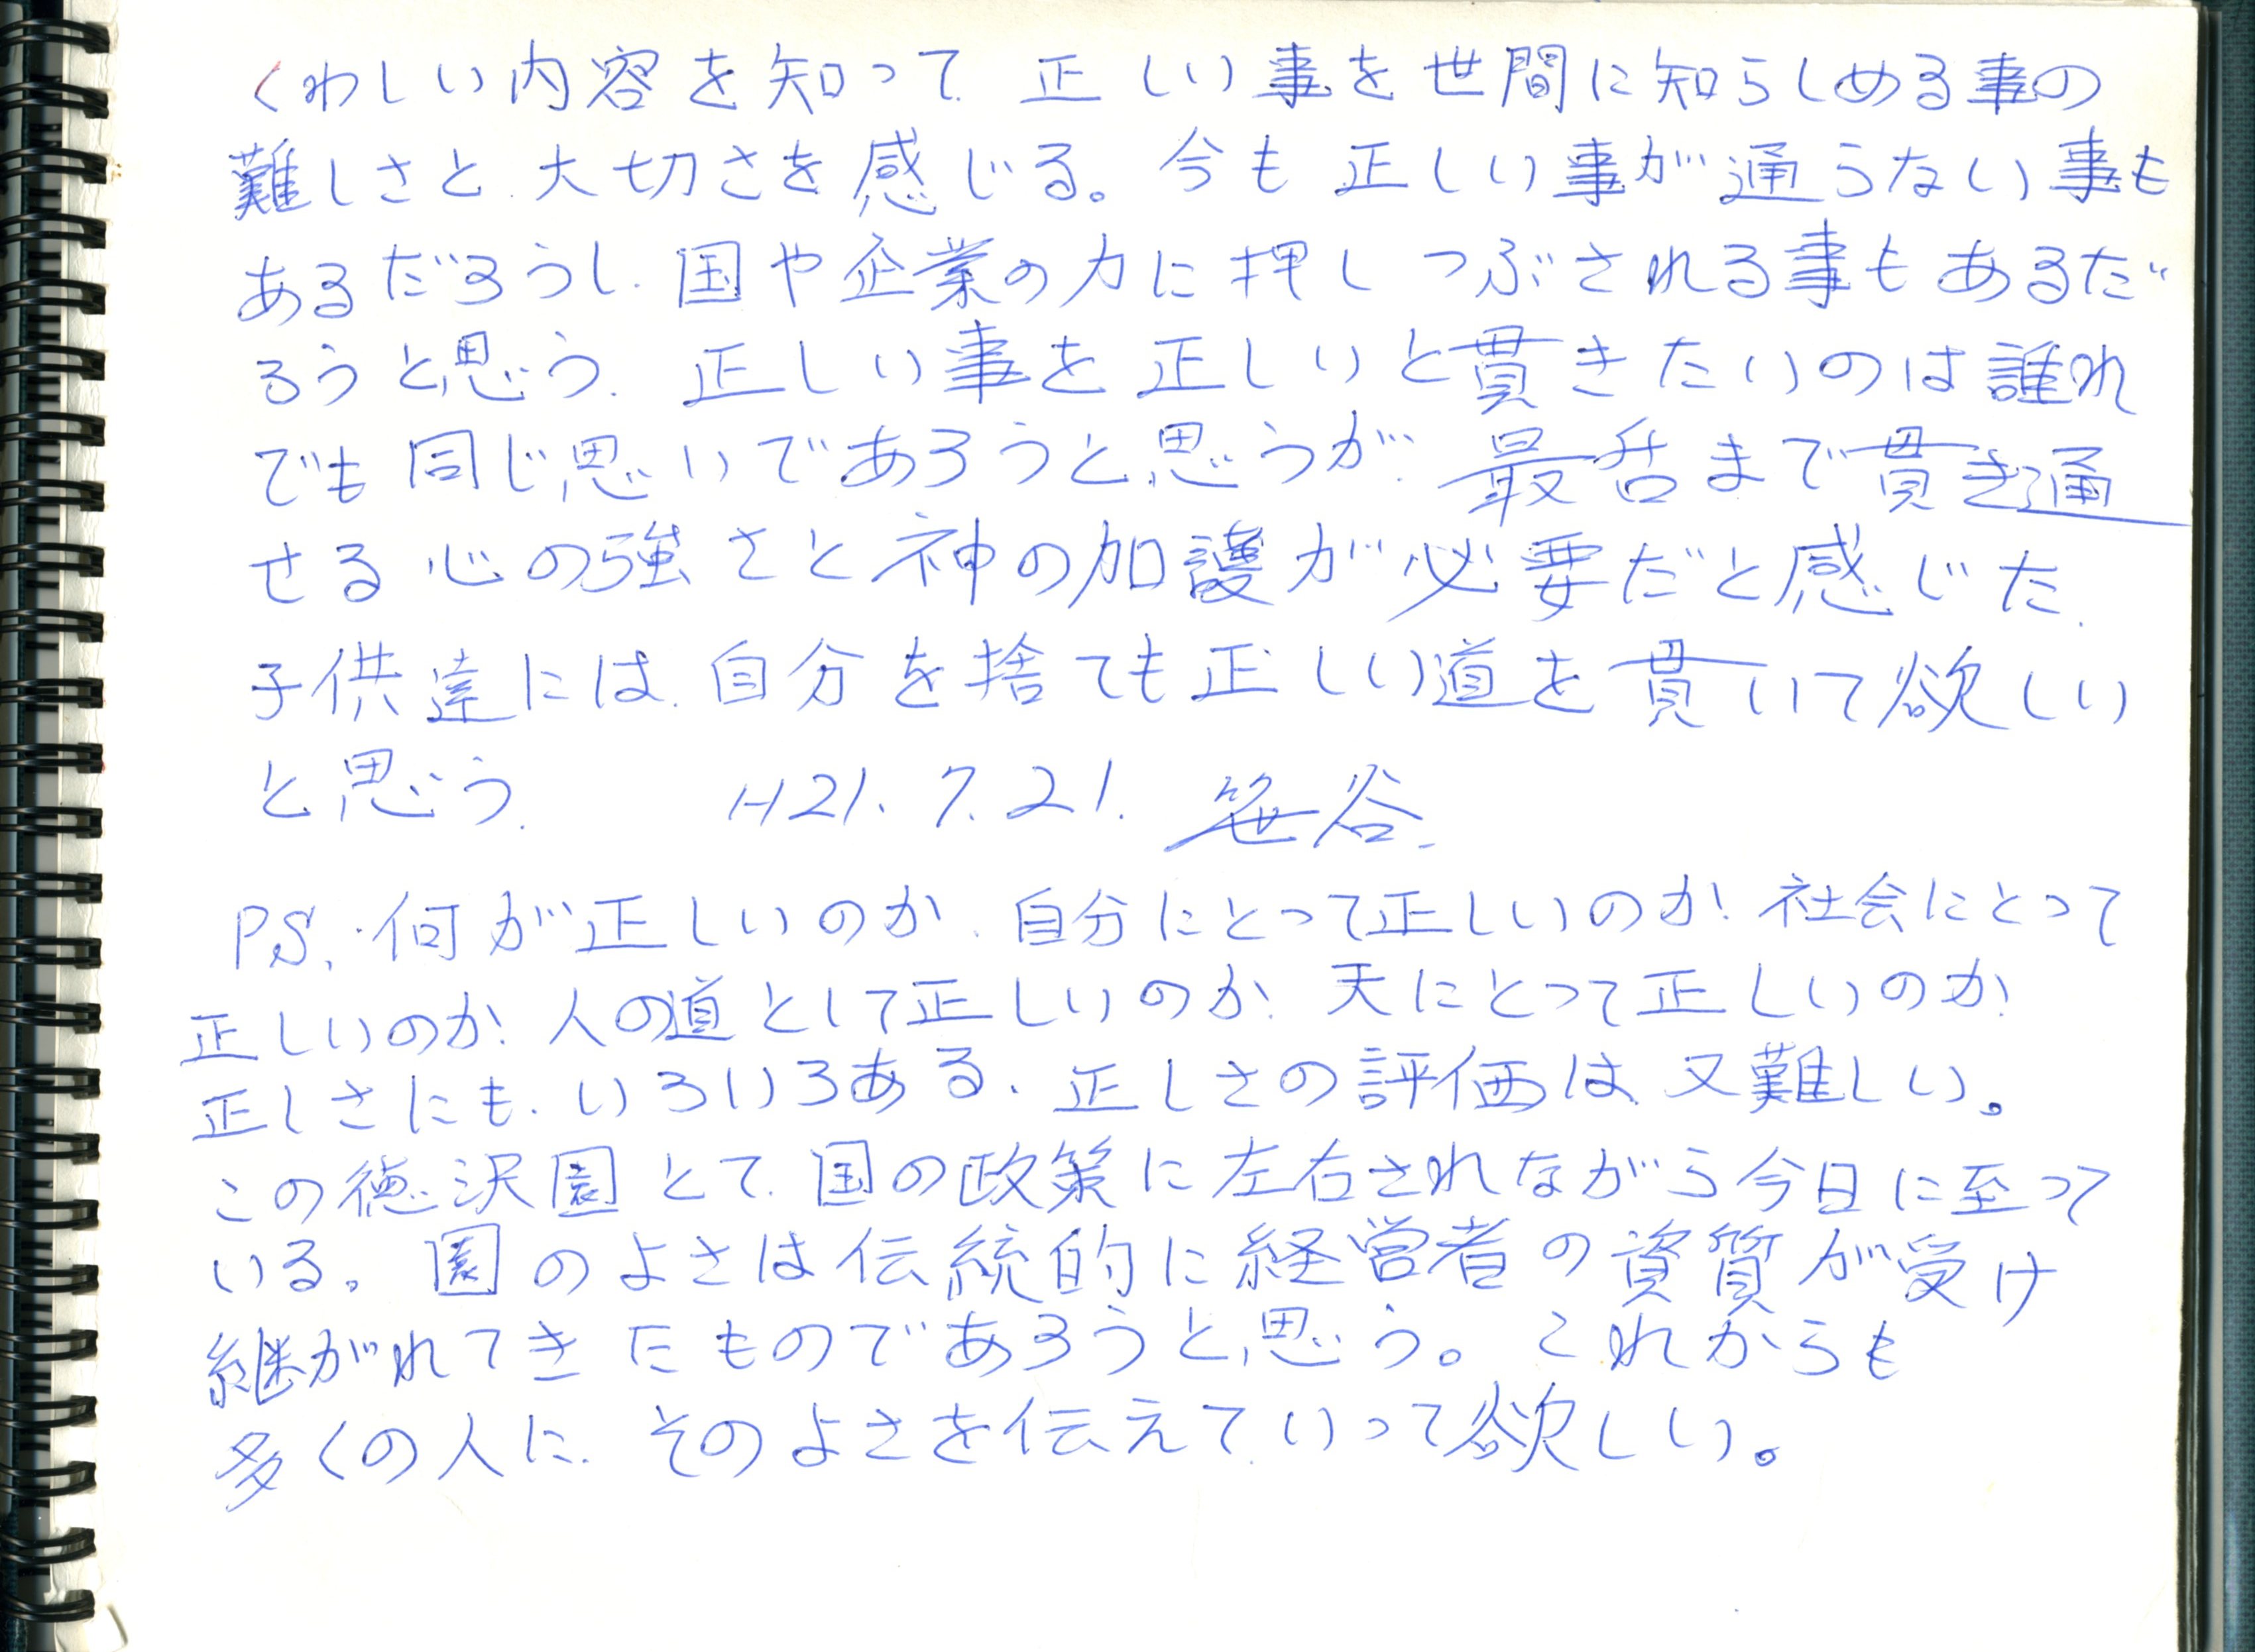 くわしい内容を知って、正しい事を世間に知らしめる事の
難しさと、大切さを感じる。今も正しい事が通らない事も
あるだろうし、国や企業の力に押しつぶされる事もあるだ
ろうと思う。正しい事を正しいと貫きたいのは誰れ
でも同じ思いであろうと思うが、最后まで貫き通
せる心の強さと神の加護が必要だと感じた。
子供達には、自分を捨ても正しい道を貫いて欲しい
と思う。 H21.7.21. 笹谷.
PS.・何が正しいのか、自分にとって正しいのか、社会にとって
正しいのか、人の道として正しいのか、天にとって正しいのか、
正しさにも、いろいろある、正しさの評価は、又難しい。
この徳沢園とて、国の政策に左右されながら今日に至って
いる。園のよさは伝統的に経営者の資質が受け
継がれてきたものであろうと思う。これからも
多くの人に、そのよさを伝えていって欲しい。